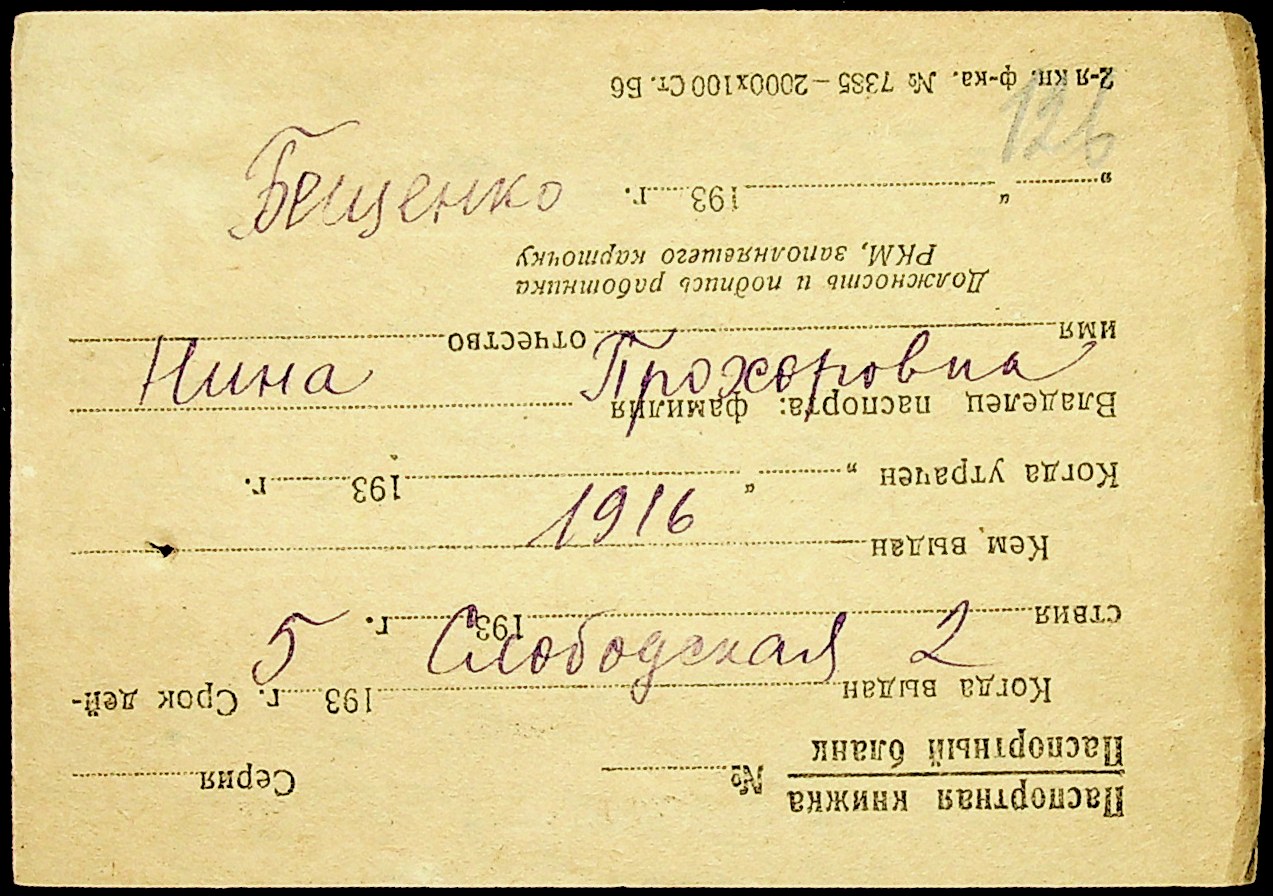 126
Бещенко
Нина Прохоровна
1916
5 Слободская 2
Паспортная книжка № Серия
Паспортный бланк
Когда выдан 193 г. Срок дей-
ствия 193 г.
Кем выдан
Когда утрачен „ “ 193 г.
Владелец паспорта: фамилия
имя отчество
Должность и подпись работника
РКМ, заполнявшего карточку
„ “ 193 г.
2-я кн. ф-ка. № 7385 – 2000х100 Ст. Б6